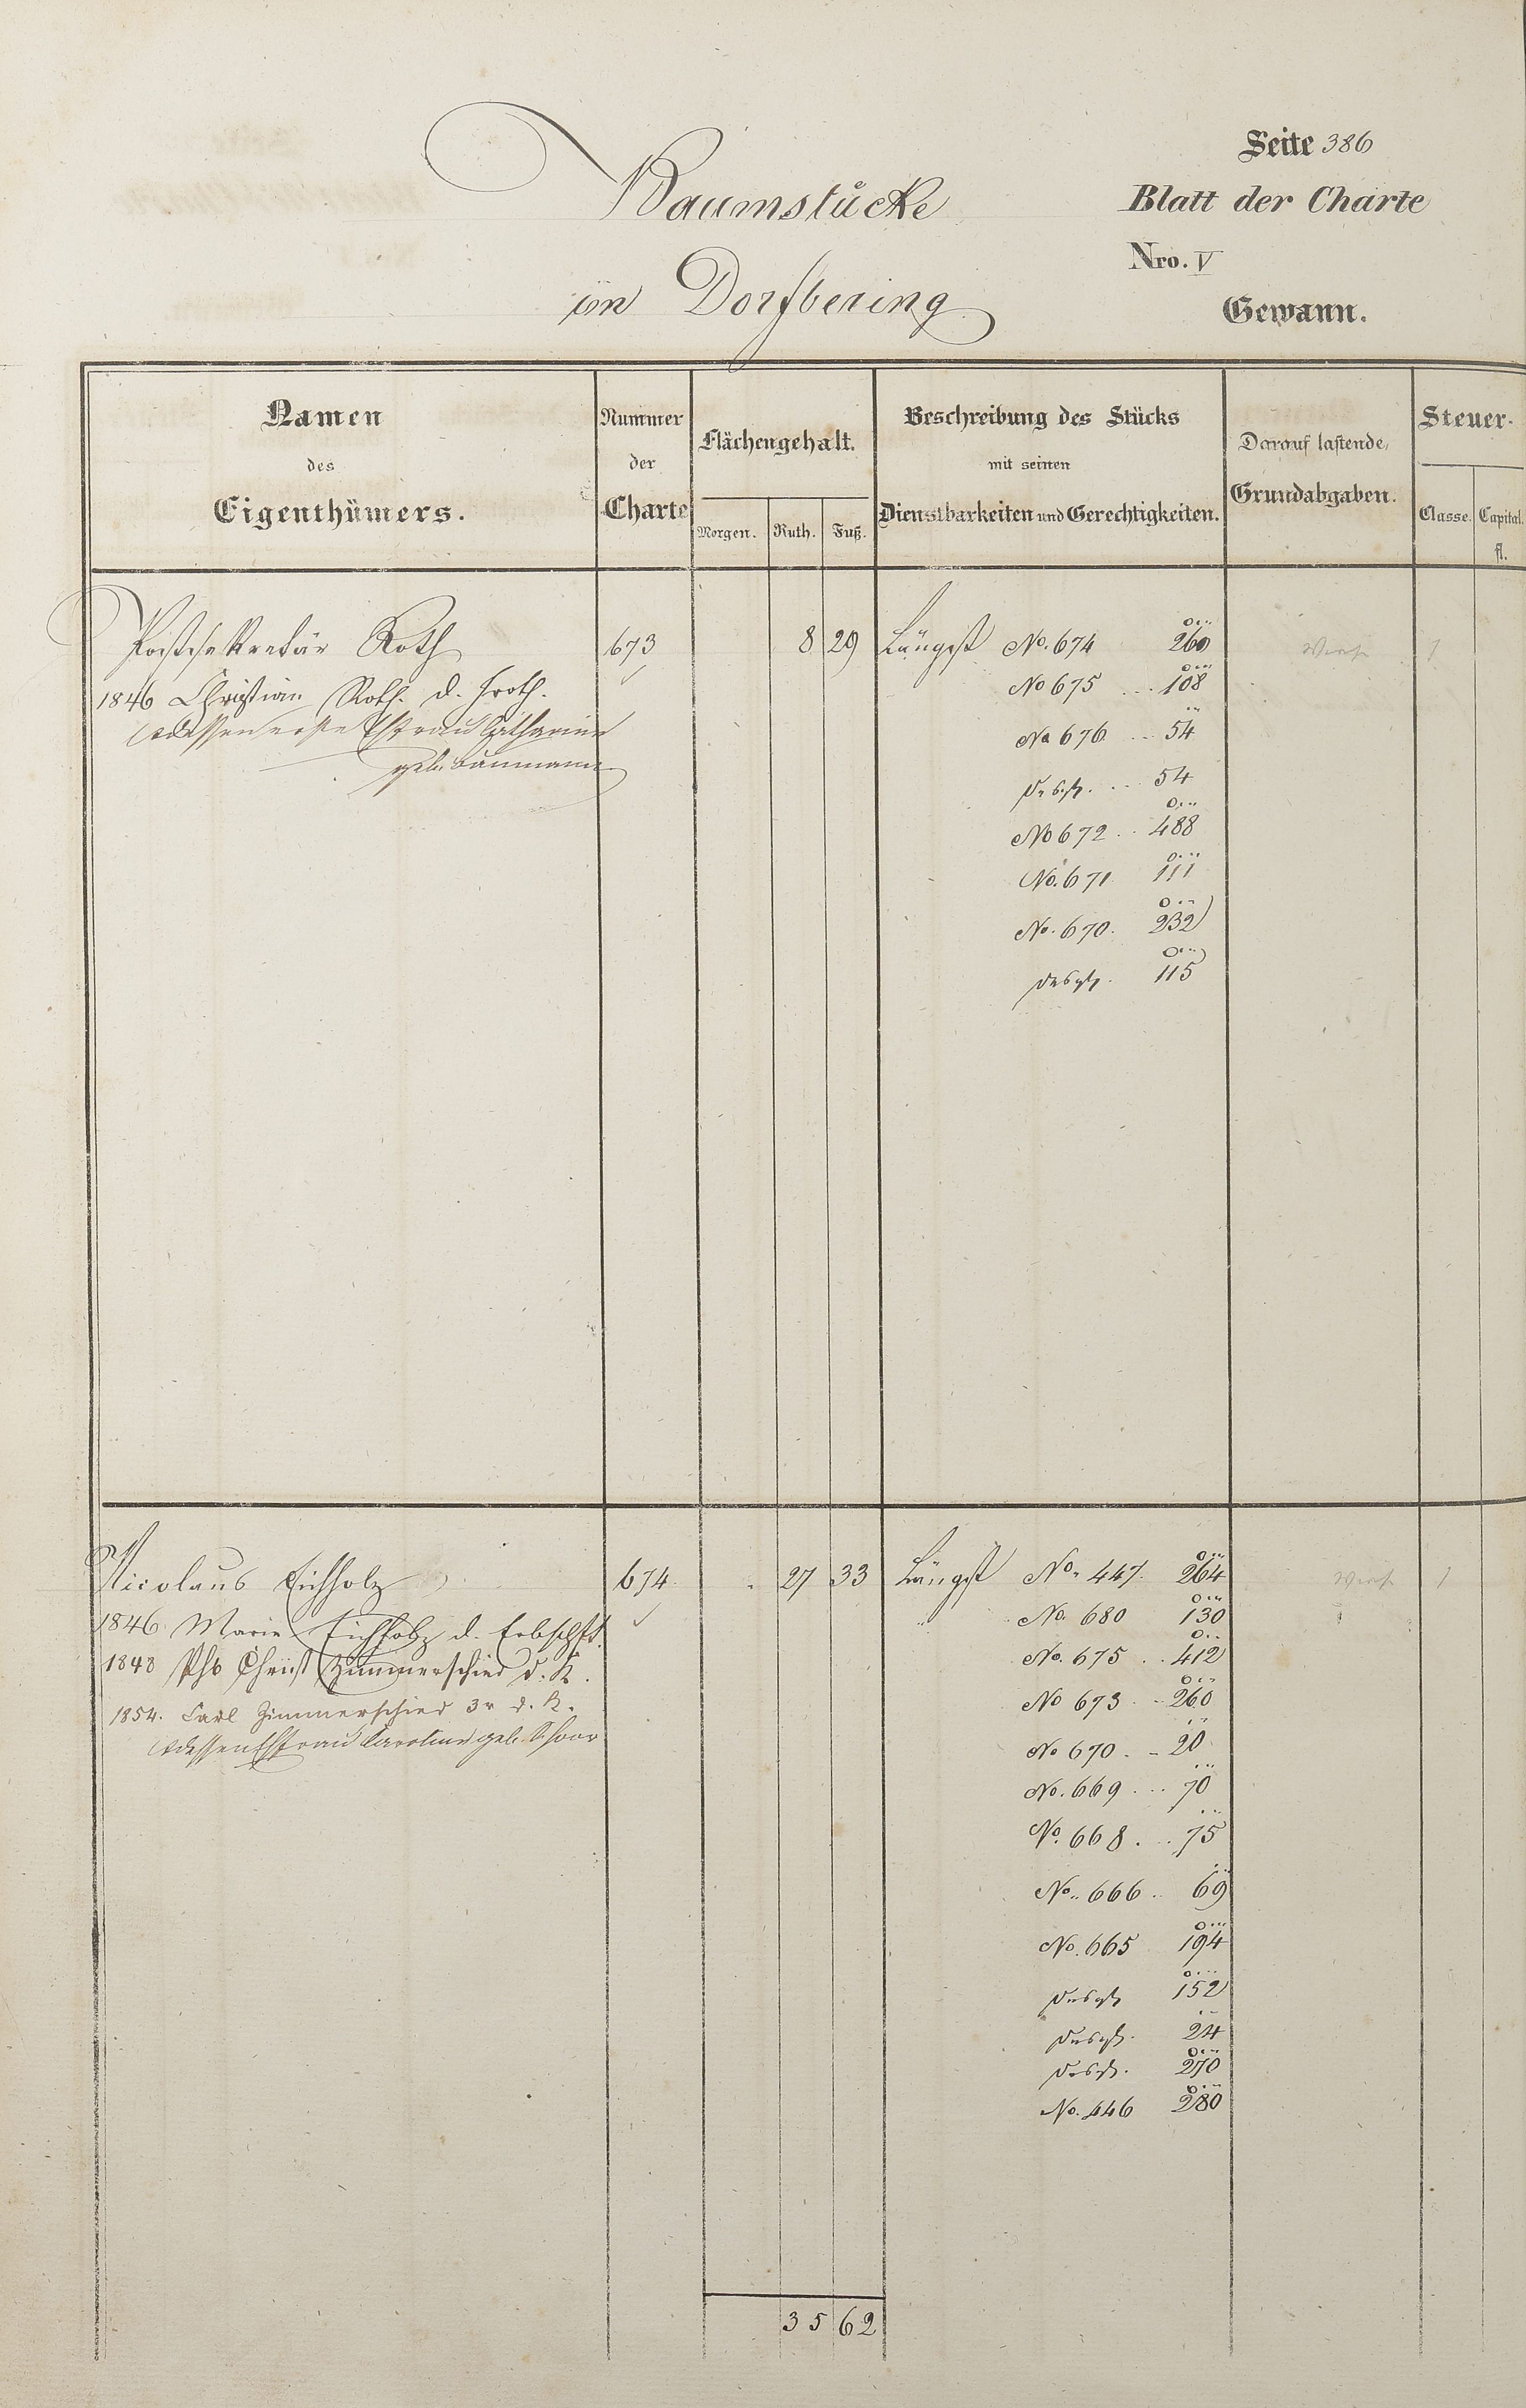 Seite 386
Baumstücke
Blatt der Charte
Nro. V
im Dorfbering
Gewann.
Namen des Eigenthümers.
Nummer der Charte
Flächengehalt.
Morgen. Ruth. Fuß.
Beschreibung des Stücks mit seinen Dienstbarkeiten und Gerechtigkeiten.
Darauf lastende Grundabgaben.
Steuer-
Classe. Capital. fl.
Postsekretär Roth 673 8 29 Längst No. 674 260
1846 Christian Roth. d.
No 675 108
dessen erste Ehefrau Catharina
No 676 54
geb. Baumann
desgl. 54
No 672 488
No. 671 111
No. 670. 232
desgl. 115
Nicolaus Eichholz 674. 27 33 Längst No. 447. 264
1846 Marie Eichholz d. Erbschft.
No. 680 130
1848 Phb Christ Zimmerschied d. K.
No. 675 412
1854. Carl Zimmerschied 3r d. K.
No 673 260
dessen Ehefrau Caroline geb.
No 670. 20
No. 669 70
No. 668. 75
No. 666 69
No. 665 194
desgl. 152
desgl. 24
desgl. 270
No. 446 280
35 62